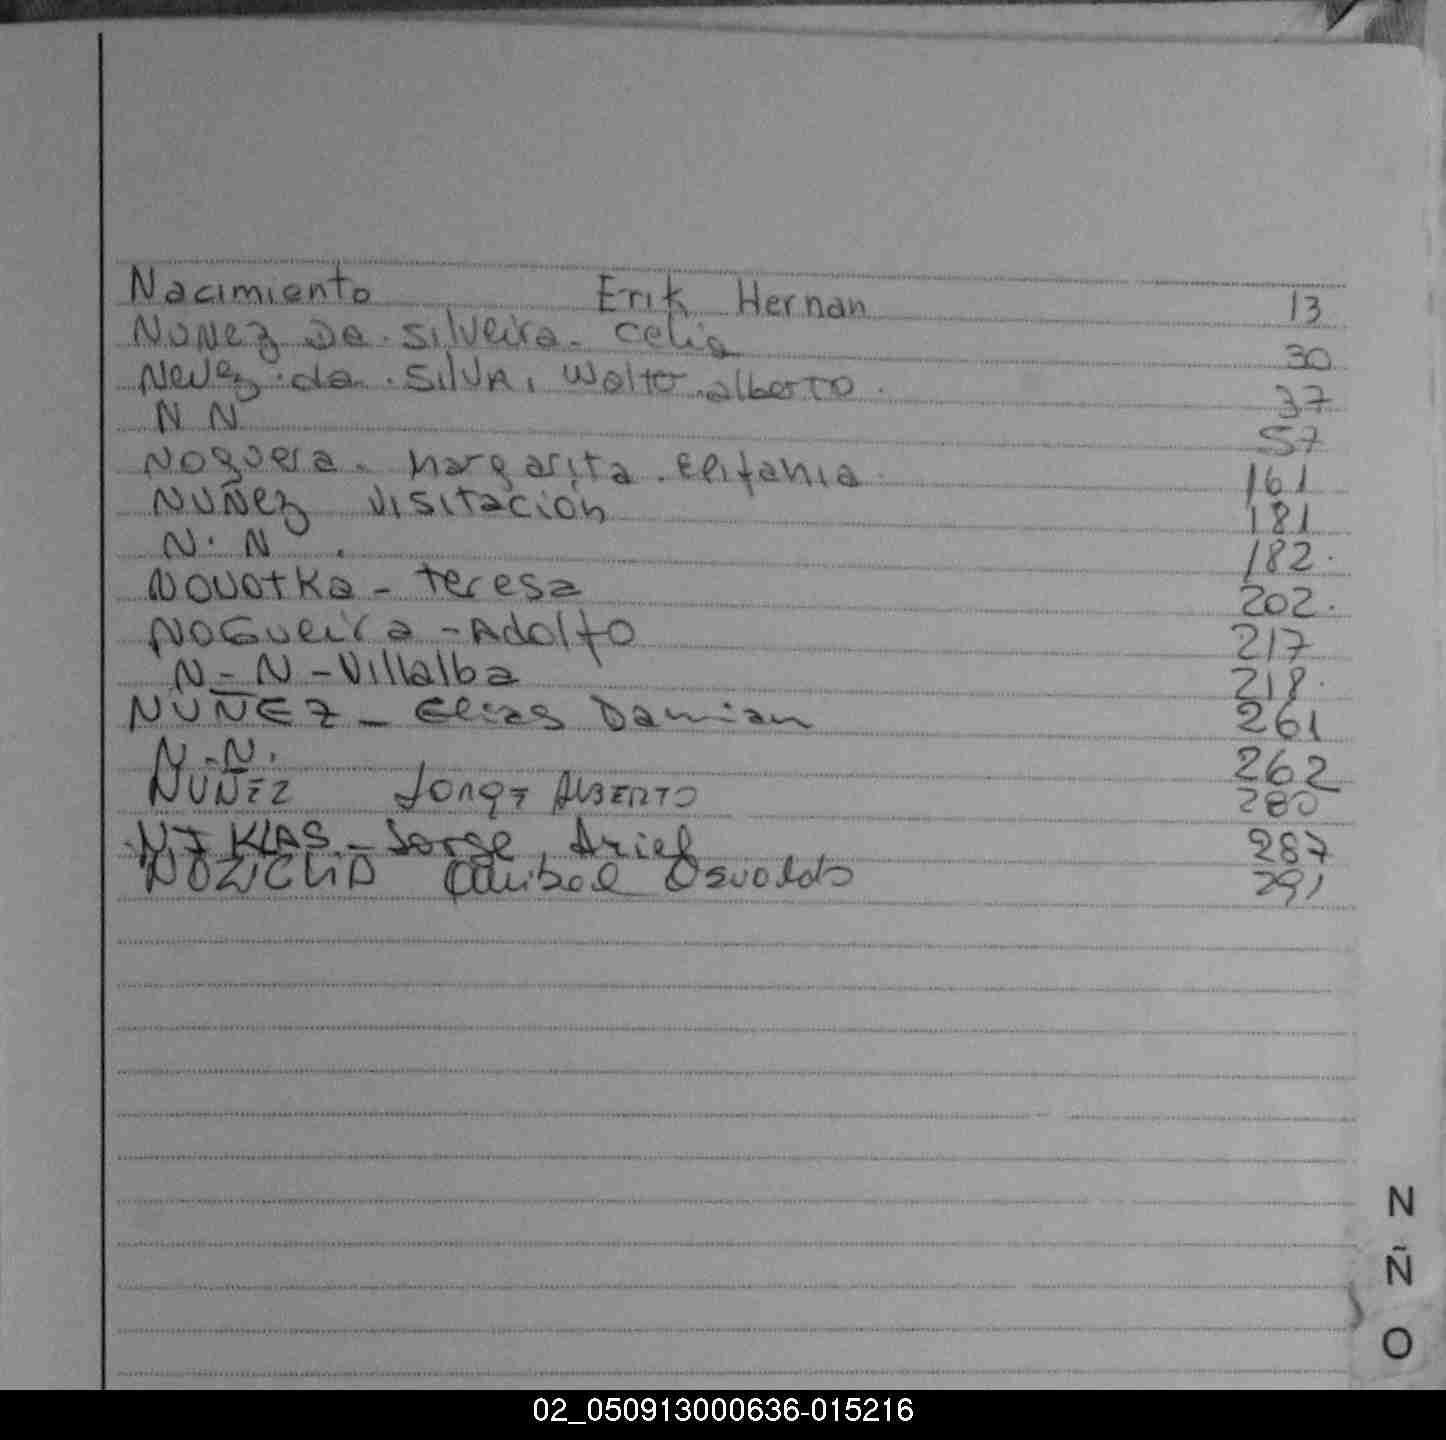 Nacimiento Erik Hernan 13
Nuñez Da. Silveira. Celia 30
Nevez. da. SilvA. Walto. alberto. 37
N N 57
Noguera. Margarita. Epifania. 161
Nuñez Visitacion 181
N. N. 182.
Novotka - teresa 202.
NoGueira - Adolfo 217
N - N - Villalba 218.
NUÑEZ - Elias Damian 261
N.N. 262
NUÑEZ Jorge ALBERTO 280
KLAS. - Jorge. Ariel 287
Osvaldo 291
N
Ñ
O
02_050913000636-015216